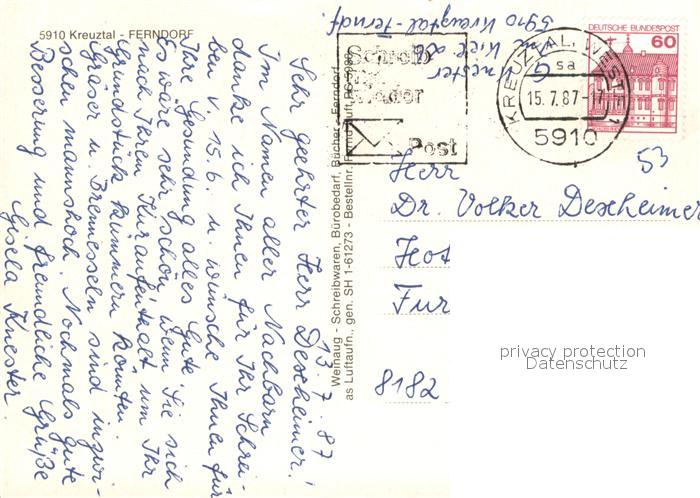 5910 Kreuztal - FERNDORF
13. 7. 87
Sehr geehrter Herr Descheimer!
Im Namen aller Nachbarn
danke ich Ihnen für Ihr Schrei-
ben v. 15.6. u. wünsche Ihnen für
Ihre Gesundung alles Gute.
Es wäre sehr schön, wenn Sie sich
nach Ihrem Kuraufenthalt um Ihr
Grundstück kümmern könnten.
Gräser u. Brennesseln sind inzwi-
schen mannshoch. Nochmals gute
Besserung und freundliche Grüße
Gisela Knester.
Weinaug - Schreibwaren, Bürobedarf, Bücher - Ferndorf
as Luftaufn., gen. SH 1-61273 - Bestellnr.
G. Knester
5910 Kreuztal-Ferndf.
Schreib
mal
wieder
Post
KREUZTAL, WESTF 1
sa
15.7.87-17
5910
DEUTSCHE BUNDESPOST
60
53
Herr
Dr. Volker Descheimer
Hot
Fur
8182
privacy protection
Datenschutz